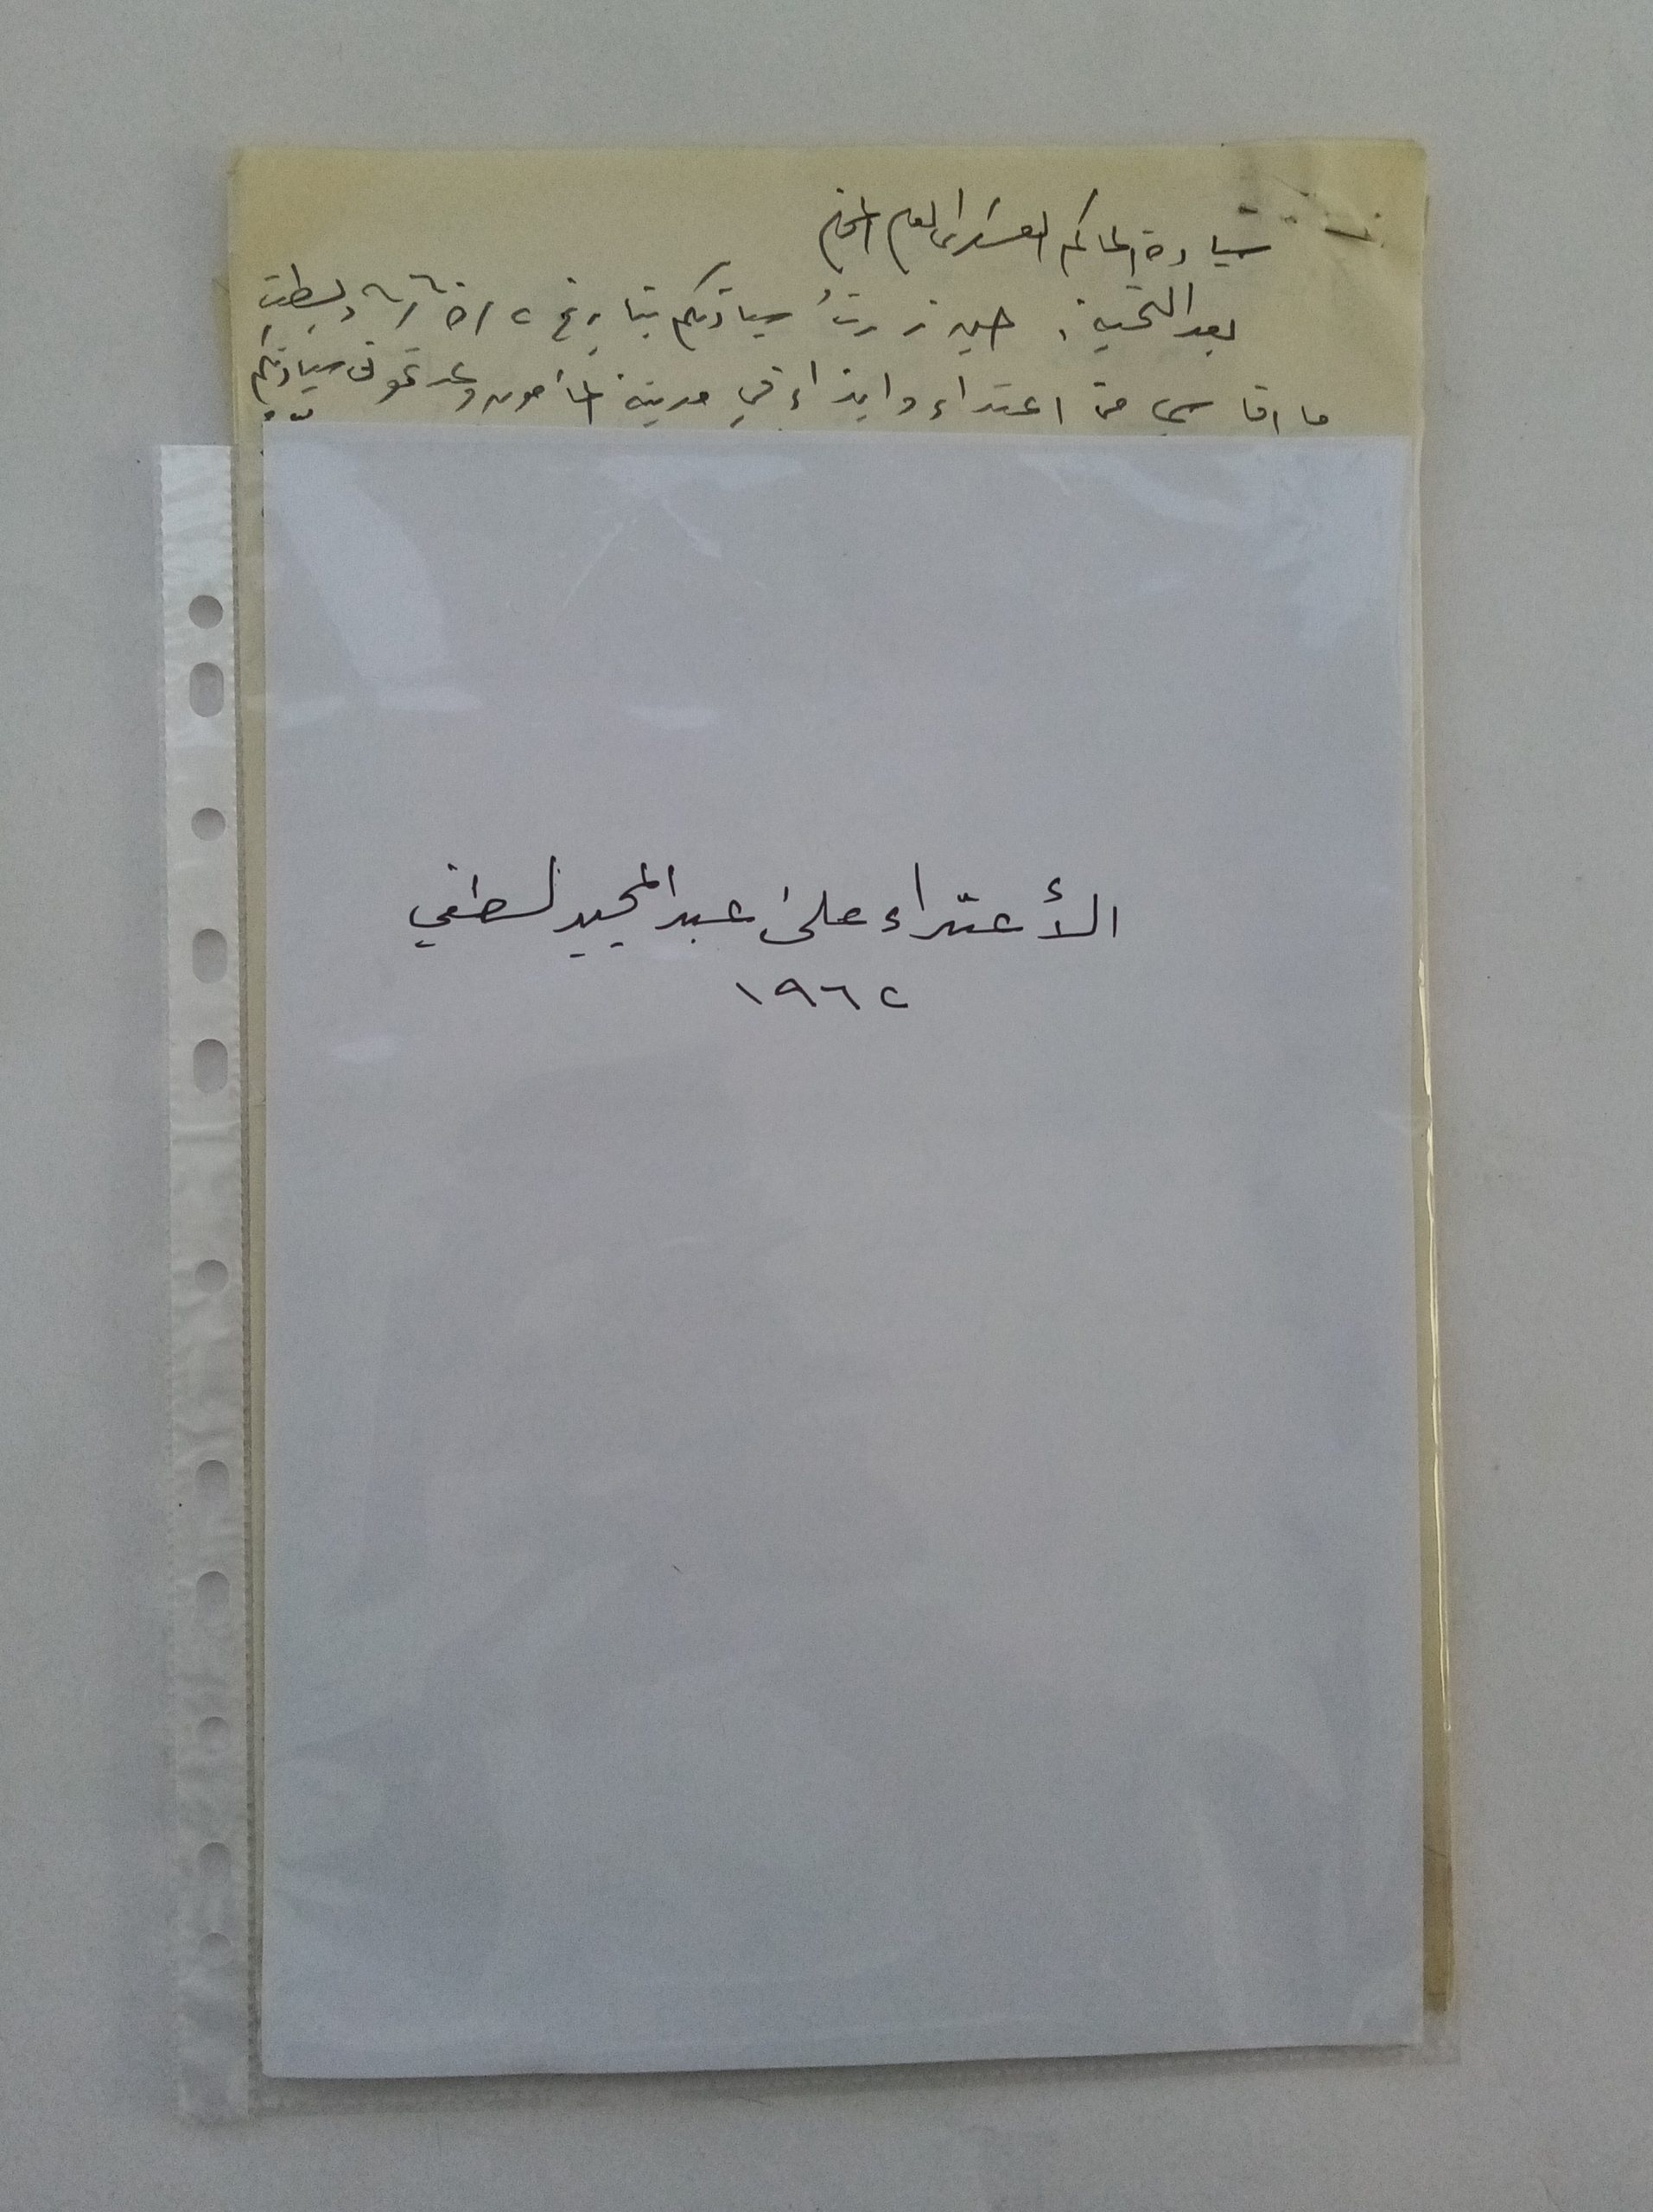 سيادة الحاكم العسكري العام المحترم
بعد التحية، حين زرتُ سيادتكم بتاريخ ٢/٥/ وبسطت
ما اقاسي من اعتداء وايذاء في مدينة المأمون وعدتموني سيادتكم
الأعتداء على عبدالمجيد لطفي
١٩٦٢